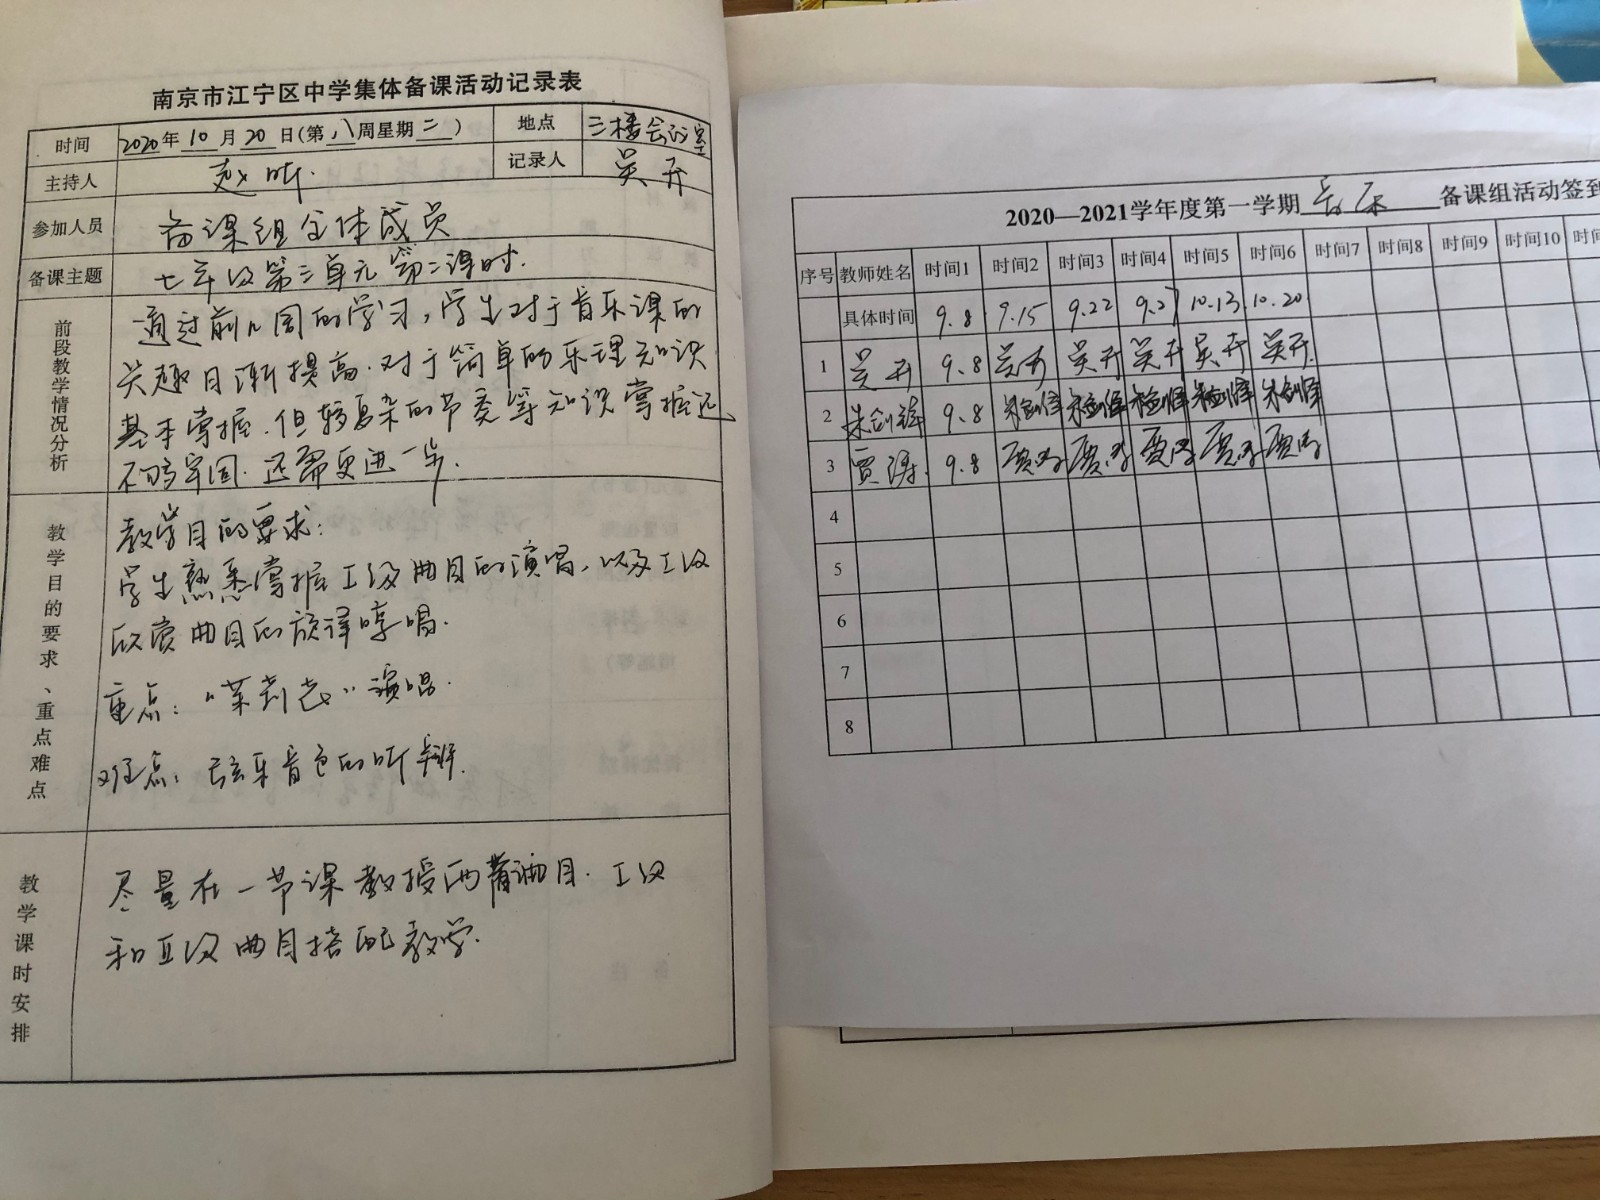 南京市江宁区中学集体备课活动记录表
时间 2020年10月20日(第八周星期二) 地点 三楼会议室
主持人 赵昕. 记录人 吴开
参加人员 备课组全体成员
备课主题 七年级第三单元第二课时.
前段教学情况分析
通过前几周的学习,学生对于音乐课的
兴趣日渐提高.对于简单的乐理知识
基本掌握.但较复杂的节奏等知识掌握还
不够牢固.还需更进一步.
教学目的要求、重点难点
教学目的要求:
学生熟悉掌握I级曲目的演唱,以及I级
欣赏曲目的旋律哼唱.
重点:“茉莉花”演唱.
难点:弦乐音色的听辨.
教学课时安排
尽量在一节课教授两首曲目.I级
和II级曲目搭配教学.
2020—2021学年度第一学期 音乐 备课组活动签到
序号 教师姓名 时间1 时间2 时间3 时间4 时间5 时间6 时间7 时间8 时间9 时间10 时间
具体时间 9.8 9.15 9.22 9.27 10.13 10.20
1 吴开 9.8 吴开 吴开 吴开 吴开 吴开
2 朱剑锋 9.8 朱剑锋 朱剑锋 朱剑锋 朱剑锋 朱剑锋
3 贾涛 9.8 贾涛 贾涛 贾涛 贾涛 贾涛
4
5
6
7
8